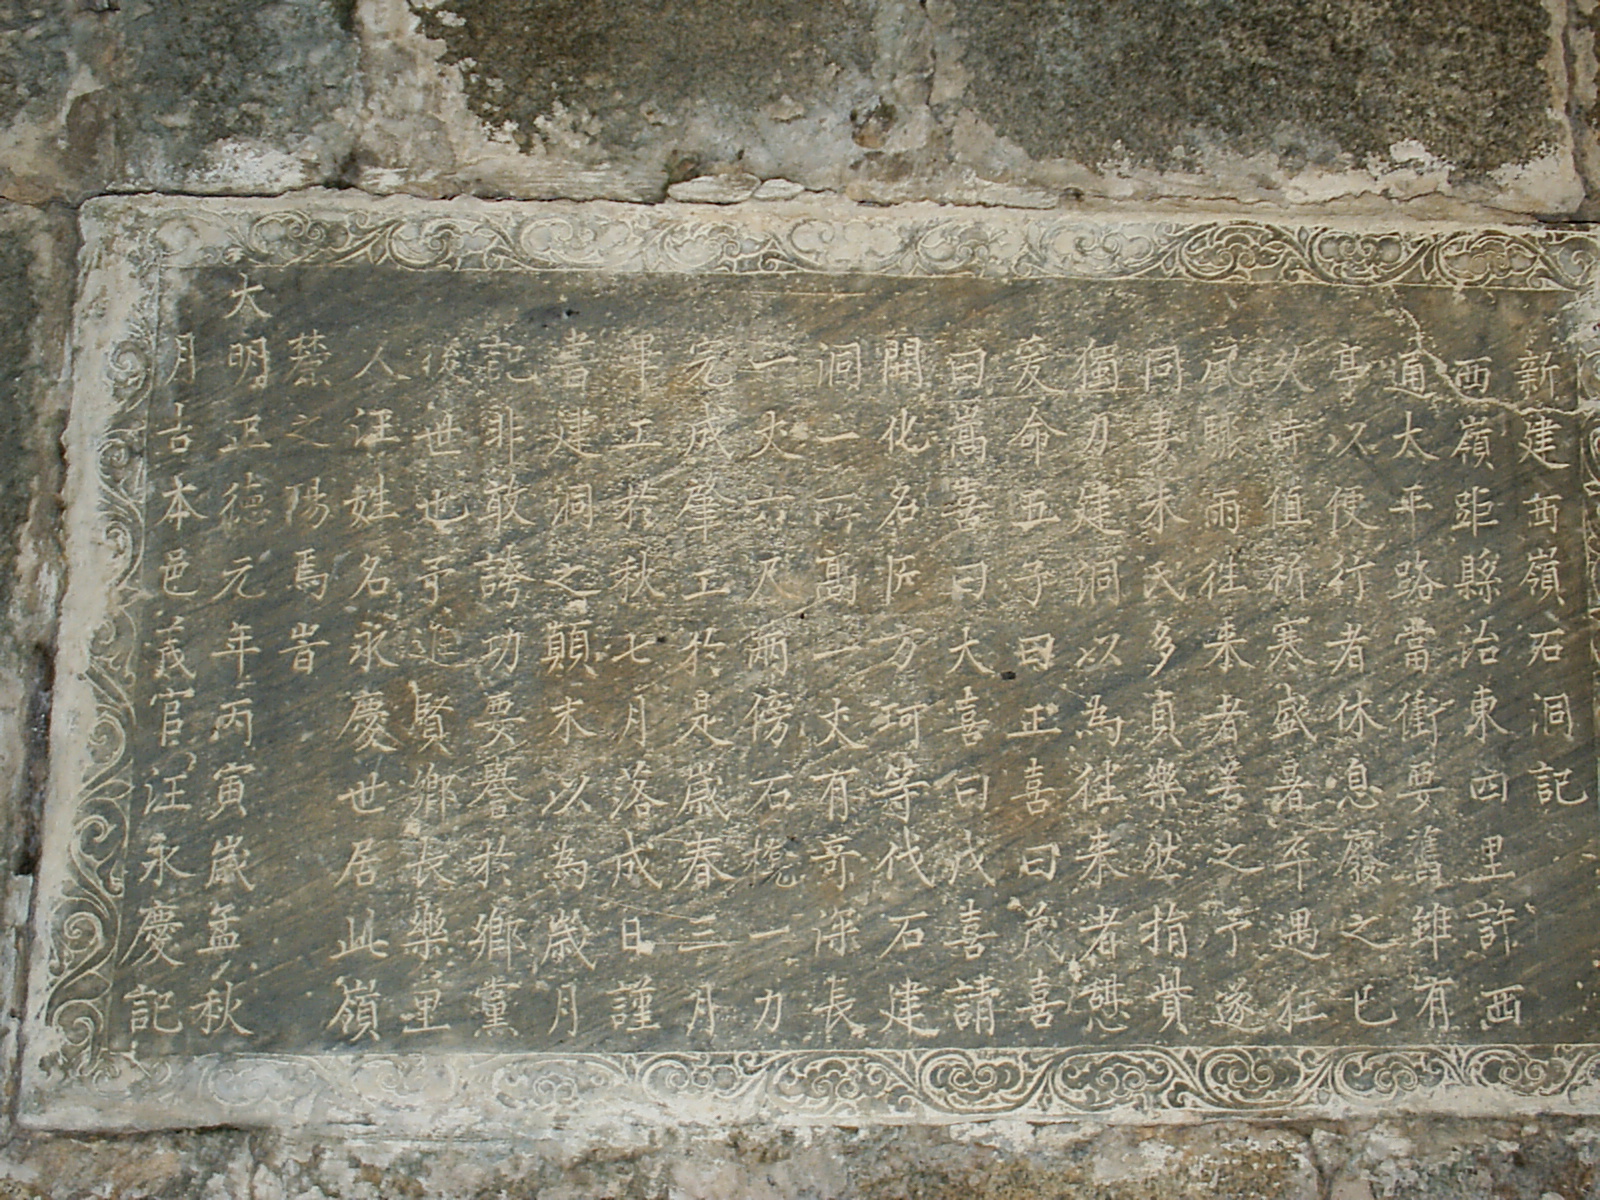 新建西嶺石洞記
西嶺距縣治東四里許西
通太平路當衝要舊雖有
亭以便行者休息廢之已
久時值祈寒盛暑卒遇狂
風驟雨徃来者苦之予遂
同妻朱氏多貞樂然捐貲
獨力建洞以為徃来者憇
爰命五子曰正喜曰茂喜
曰萬喜曰大喜曰戊喜請
開化名匠方珂等伐石建
洞一所高一丈有奇深長
一丈六尺兩傍石櫈一力
完成肇工於是歲春三月
畢工於秋七月落成日謹
書建洞之顛末以為歲月
記非敢誇功要譽於鄉黨
後世也予進賢鄉長樂里
人汪姓名永慶世居此嶺
之陽焉旹
大明正德元年丙寅歲孟秋
月吉本邑義官汪永慶記